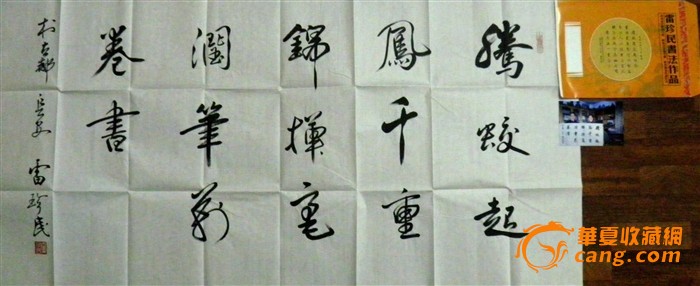 騰蛟起
鳳千重
錦揮毫
潤筆萬
卷書
於古都長安雷珍民
雷珍民書法作品
華夏收藏網
cang.com